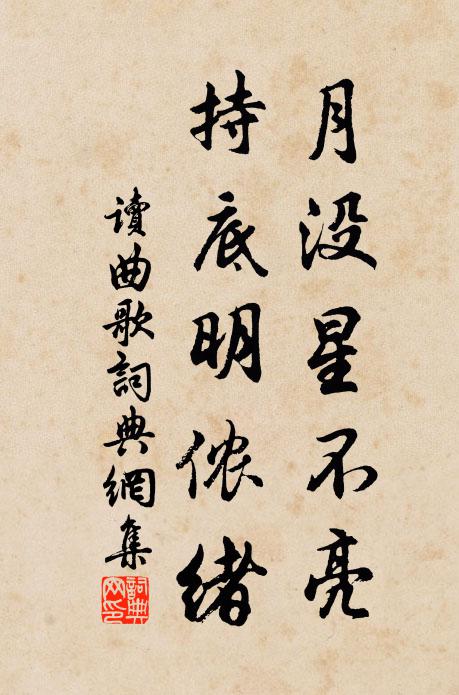 月没星不亮
持底明侬绪
讀曲歌詞典網集
詞典网印